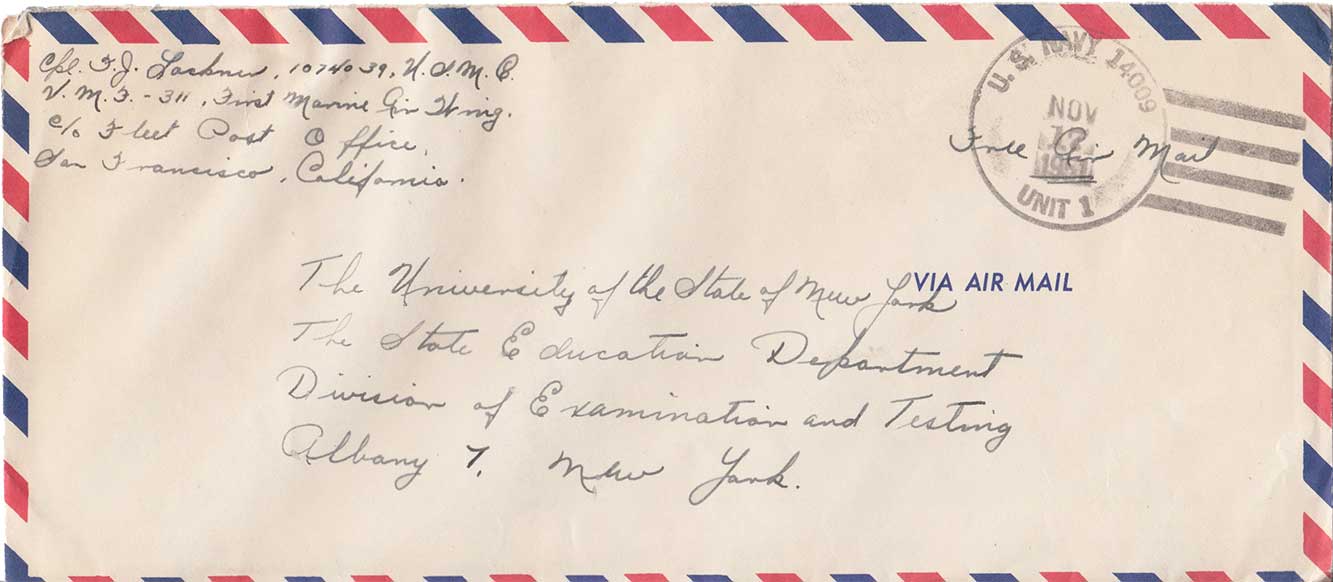 Cpl. F. J. Lackner, 1074039, U.S.M.C.
V.M.F.-311, First Marine Air Wing.
c/o Fleet Post Office,
San Francisco, California.
U.S. NAVY 14009
NOV
1951
UNIT 1
Free Air Mail
VIA AIR MAIL
The University of the State of New York
The State Education Department
Division of Examination and Testing
Albany 7, New York.